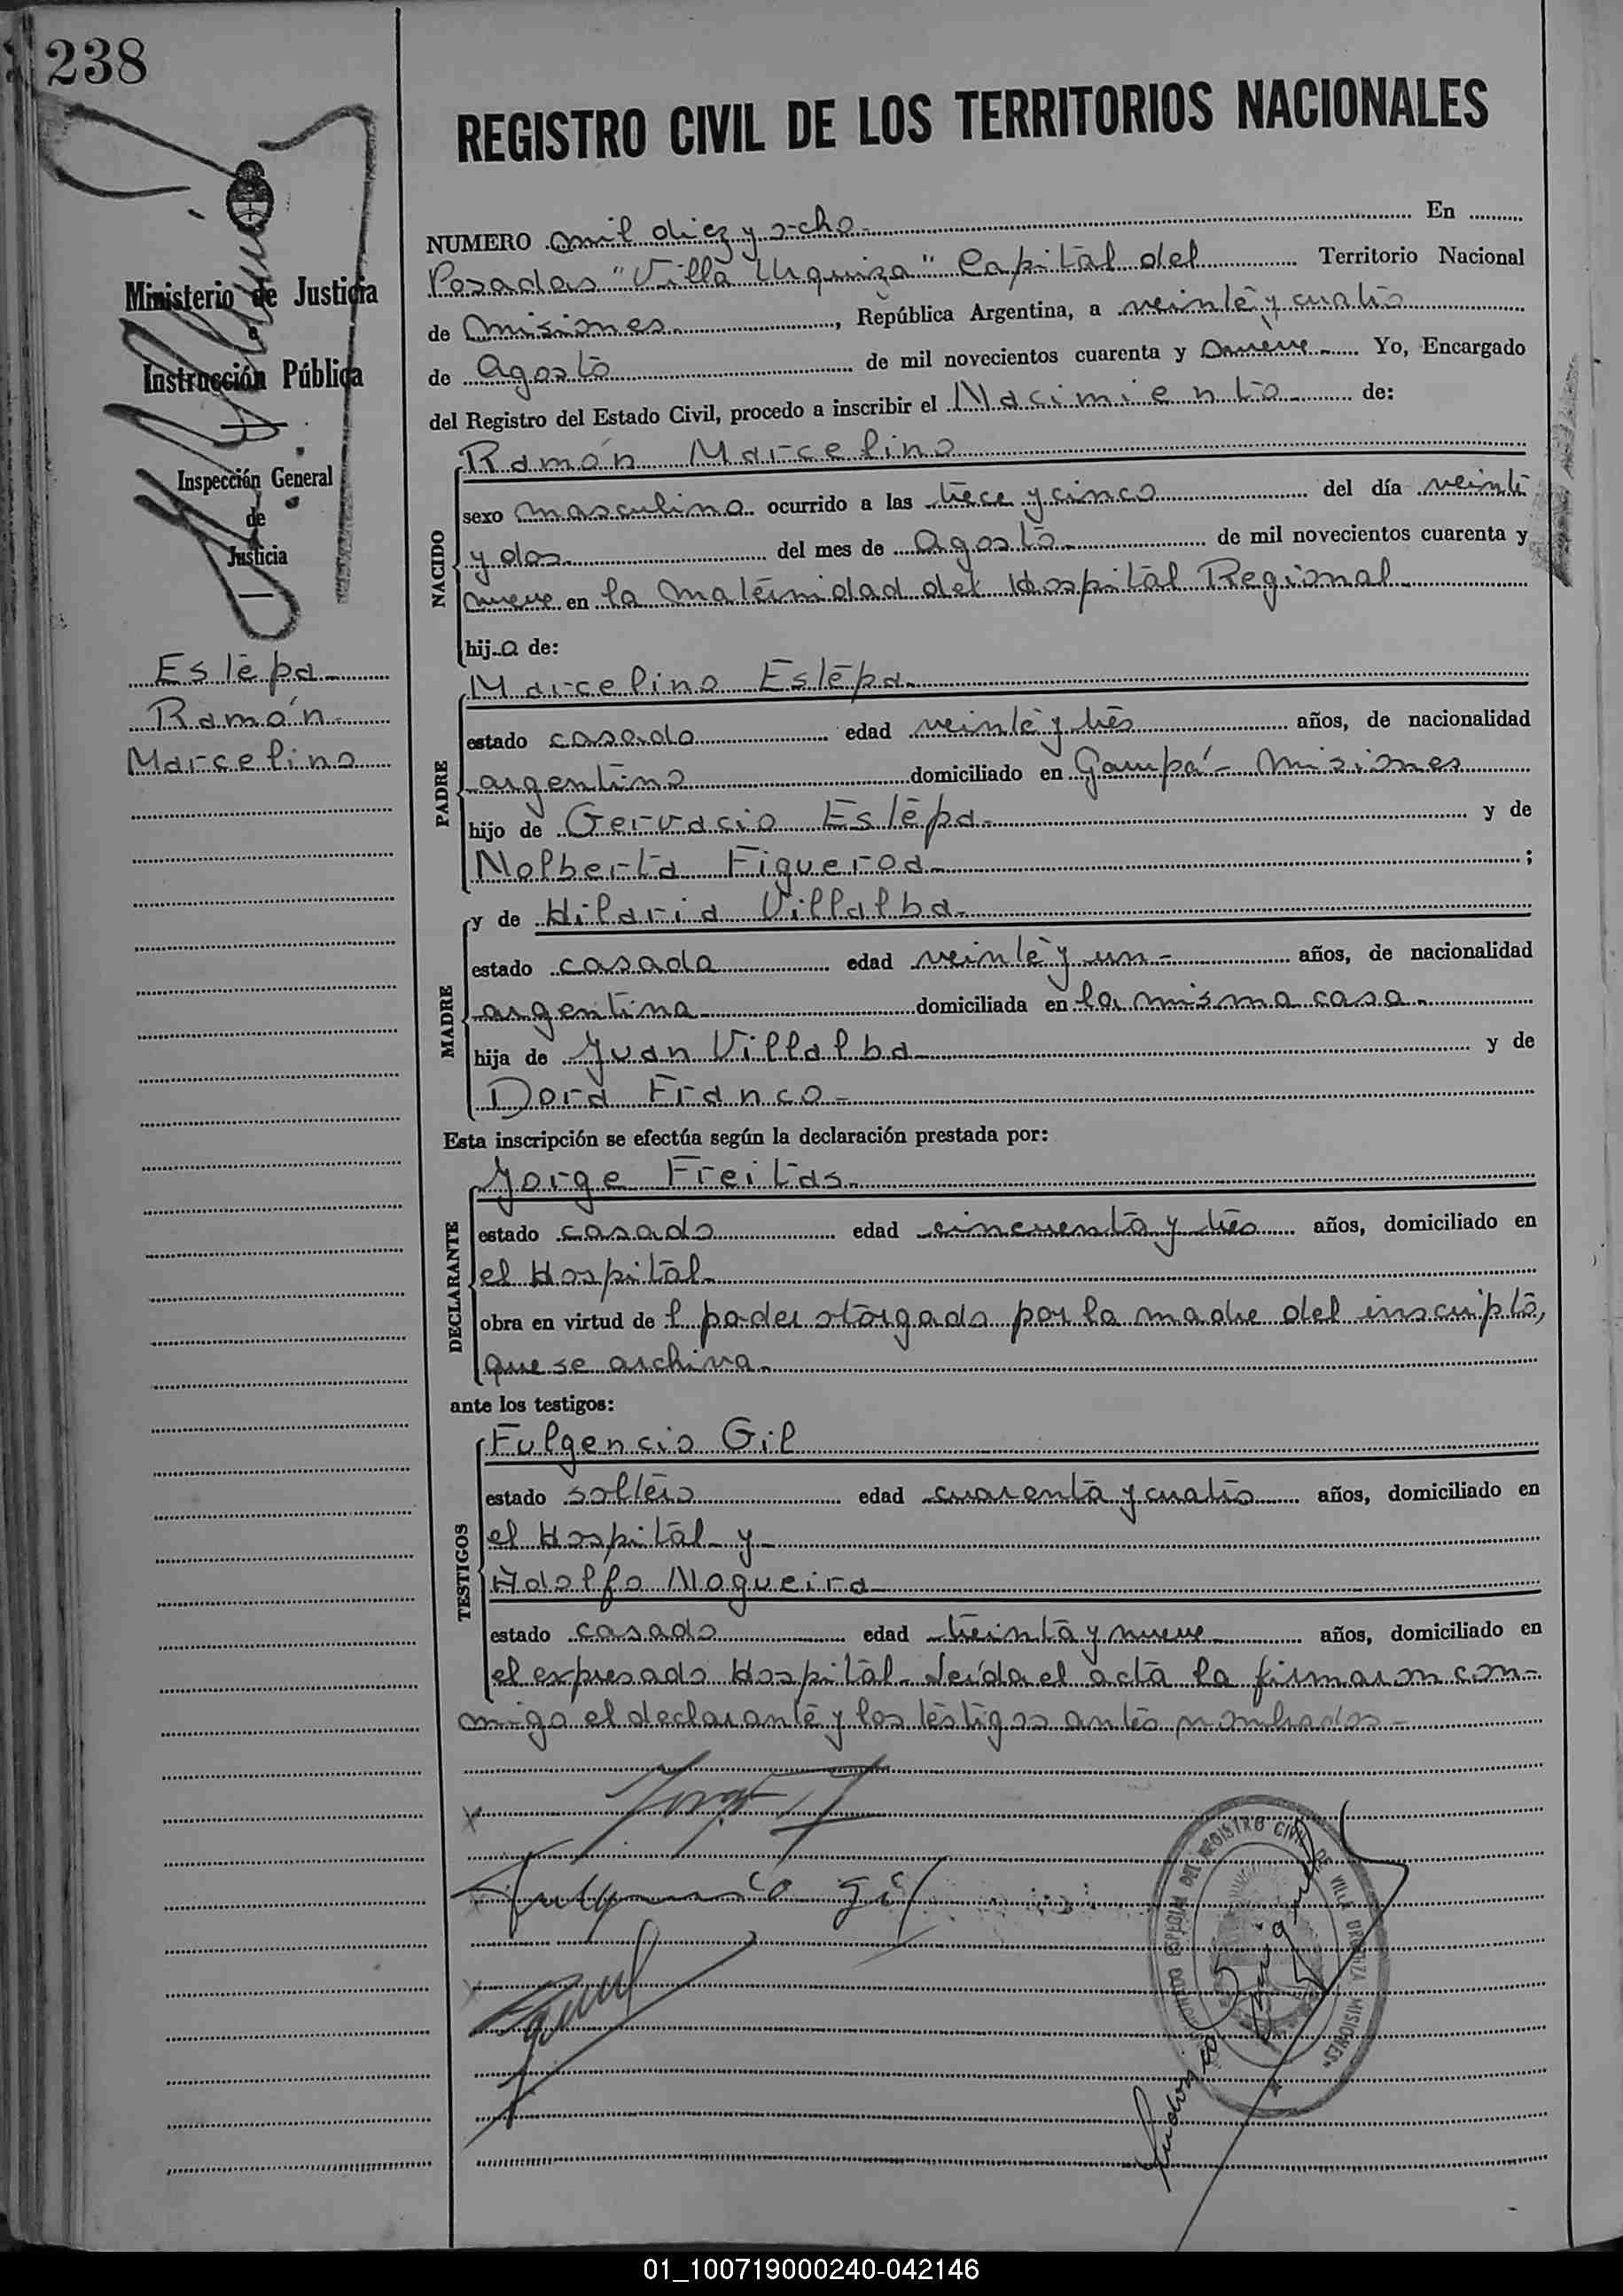 238
REGISTRO CIVIL DE LOS TERRITORIOS NACIONALES
Ministerio de Justicia
e
Instrucción Pública
Inspección General
de
Justicia
Estepa
Ramón
Marcelino
NUMERO mil diez y ocho En
Posadas "Villa Urquiza" Capital del Territorio Nacional
de Misiones, República Argentina, a veinte y cuatro
de Agosto de mil novecientos cuarenta y nueve Yo, Encargado
del Registro del Estado Civil, procedo a inscribir el Nacimiento de:
NACIDO
Ramón Marcelino
sexo masculino ocurrido a las trece y cinco del día veinte
y dos del mes de Agosto de mil novecientos cuarenta y
nueve en la Maternidad del Hospital Regional
hijo de:
PADRE
Marcelino Estepa
estado casado edad veinte y tres años, de nacionalidad
argentino domiciliado en Garupá - Misiones
hijo de Gervacio Estepa y de
Nolberta Figueroa ;
MADRE
y de Hilaria Villalba
estado casada edad veinte y un años, de nacionalidad
argentina domiciliada en la misma casa
hija de Juan Villalba y de
Dora Franco
Esta inscripción se efectúa según la declaración prestada por:
DECLARANTE
Jorge Freitas
estado casado edad cincuenta y tres años, domiciliado en
el Hospital
obra en virtud de l poder otorgado por la madre del inscripto,
que se archiva
ante los testigos:
TESTIGOS
Fulgencio Gil
estado soltero edad cuarenta y cuatro años, domiciliado en
el Hospital y
Adolfo Nogueira
estado casado edad treinta y nueve años, domiciliado en
el expresado Hospital. Leída el acta la firmaron con-
migo el declarante y los testigos antes nombrados
Fulgencio Gil
REGISTRO CIVIL DE VILLA URQUIZA MISIONES
01_100719000240-042146